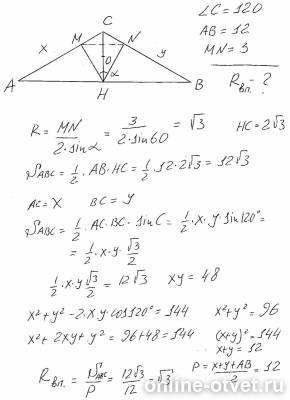 ∠C = 120
AB = 12
MN = 3
Rвп. - ?
C
M
N
x
y
O
α
A
H
B
R = MN / (2·sinα) = 3 / (2·sin60) = √3
HC = 2√3
S ABC = 1/2 · AB·HC = 1/2 · 12·2√3 = 12√3
AC = x BC = y
S ABC = 1/2 · AC·BC·sin C = 1/2 · x·y·sin120° =
= 1/2 · x·y · √3/2
1/2 · x·y √3/2 = 12√3 xy = 48
x²+y²-2·x·y·cos120° = 144 x²+y² = 96
x²+2xy+y² = 96+48 = 144 (x+y)² = 144
x+y = 12
Rвп. = S ABC / P = 12√3 / 12 = √3
P = (x+y+AB) / 2 = 12
online-otvet.ru